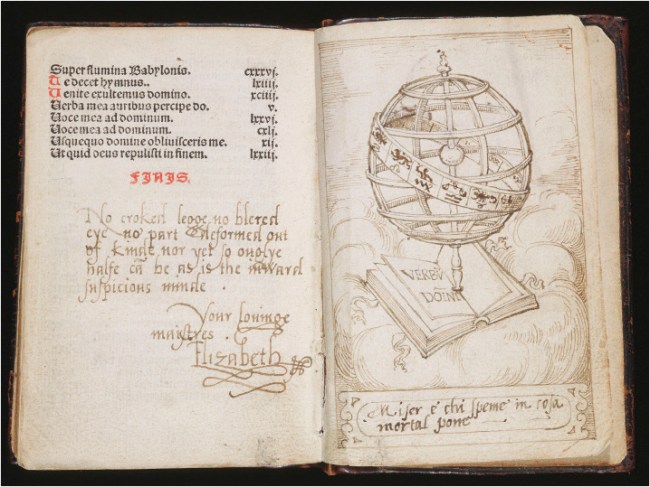 Super flumina Babylonis. cxxxvj.
Te decet hymnus.. lxiiij.
Venite exultemus domino. xciiij.
Verba mea auribus percipe do. v.
Voce mea ad dominum. lxxvj.
Voce mea ad dominum. cxlj.
Usquequo domine obliuisceris me. xij.
Ut quid deus repulisti in finem. lxxiij.
FINIS.
No croked legge, no blered
eye no part deformed out
of kinde nor yet so ouglye
halfe cā be as is the inward
suspicious minde .
Your louinge
maistres .
Elizabeth
VERBV̄
DOINI
Miser è chi speme in cosa
mortal pone